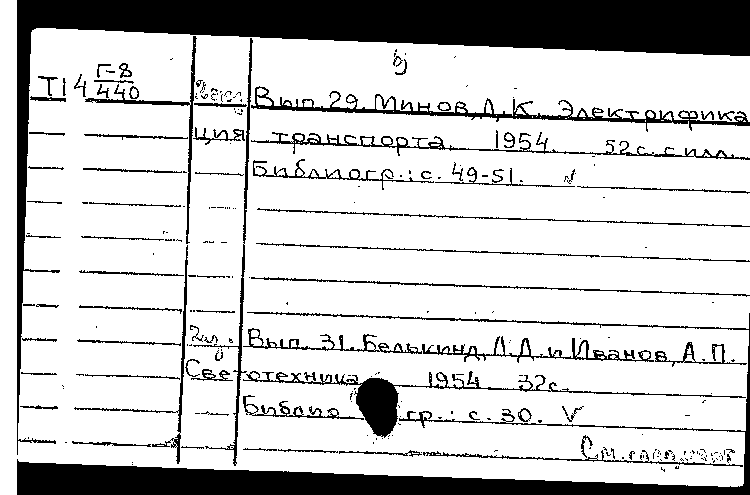 б)
Т14 Г-8/440
Вып. 29. Минов, Д. К. Электрифика
ция транспорта. 1954. 52с. с илл.
Библиогр.: с. 49-51. √
Вып. 31. Белькинд, Л.Д. и Иванов, А.П.
Светотехника 1954. 32с.
Библиогр.: с. 30. V
См.